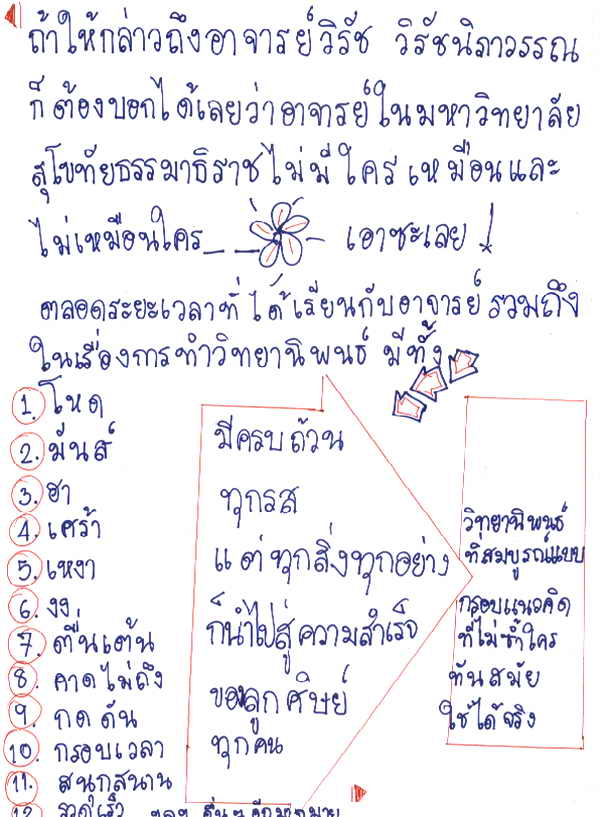 ถ้าให้กล่าวถึงอาจารย์วิรัช วิรัชนิภาวรรณ
ก็ต้องบอกได้เลยว่าอาจารย์ในมหาวิทยาลัย
สุโขทัยธรรมาธิราชไม่มีใครเหมือนและ
ไม่เหมือนใคร__ เอาซะเลย !
ตลอดระยะเวลาที่ได้เรียนกับอาจารย์รวมถึง
ในเรื่องการทำวิทยานิพนธ์ มีทั้ง
1. โหด
2. มันส์
3. ฮา
4. เศร้า
5. เหงา
6. งง
7. ตื่นเต้น
8. คาดไม่ถึง
9. กดดัน
10. กรอบเวลา
11. สนุกสนาน
12 รวดเร็ว
มีครบถ้วน
ทุกรส
แต่ทุกสิ่งทุกอย่าง
ก็นำไปสู่ความสำเร็จ
ของลูกศิษย์
ทุกคน
วิทยานิพนธ์
ที่สมบูรณ์แบบ
กรอบแนวคิด
ที่ไม่ซ้ำใคร
ทันสมัย
ใช้ได้จริง